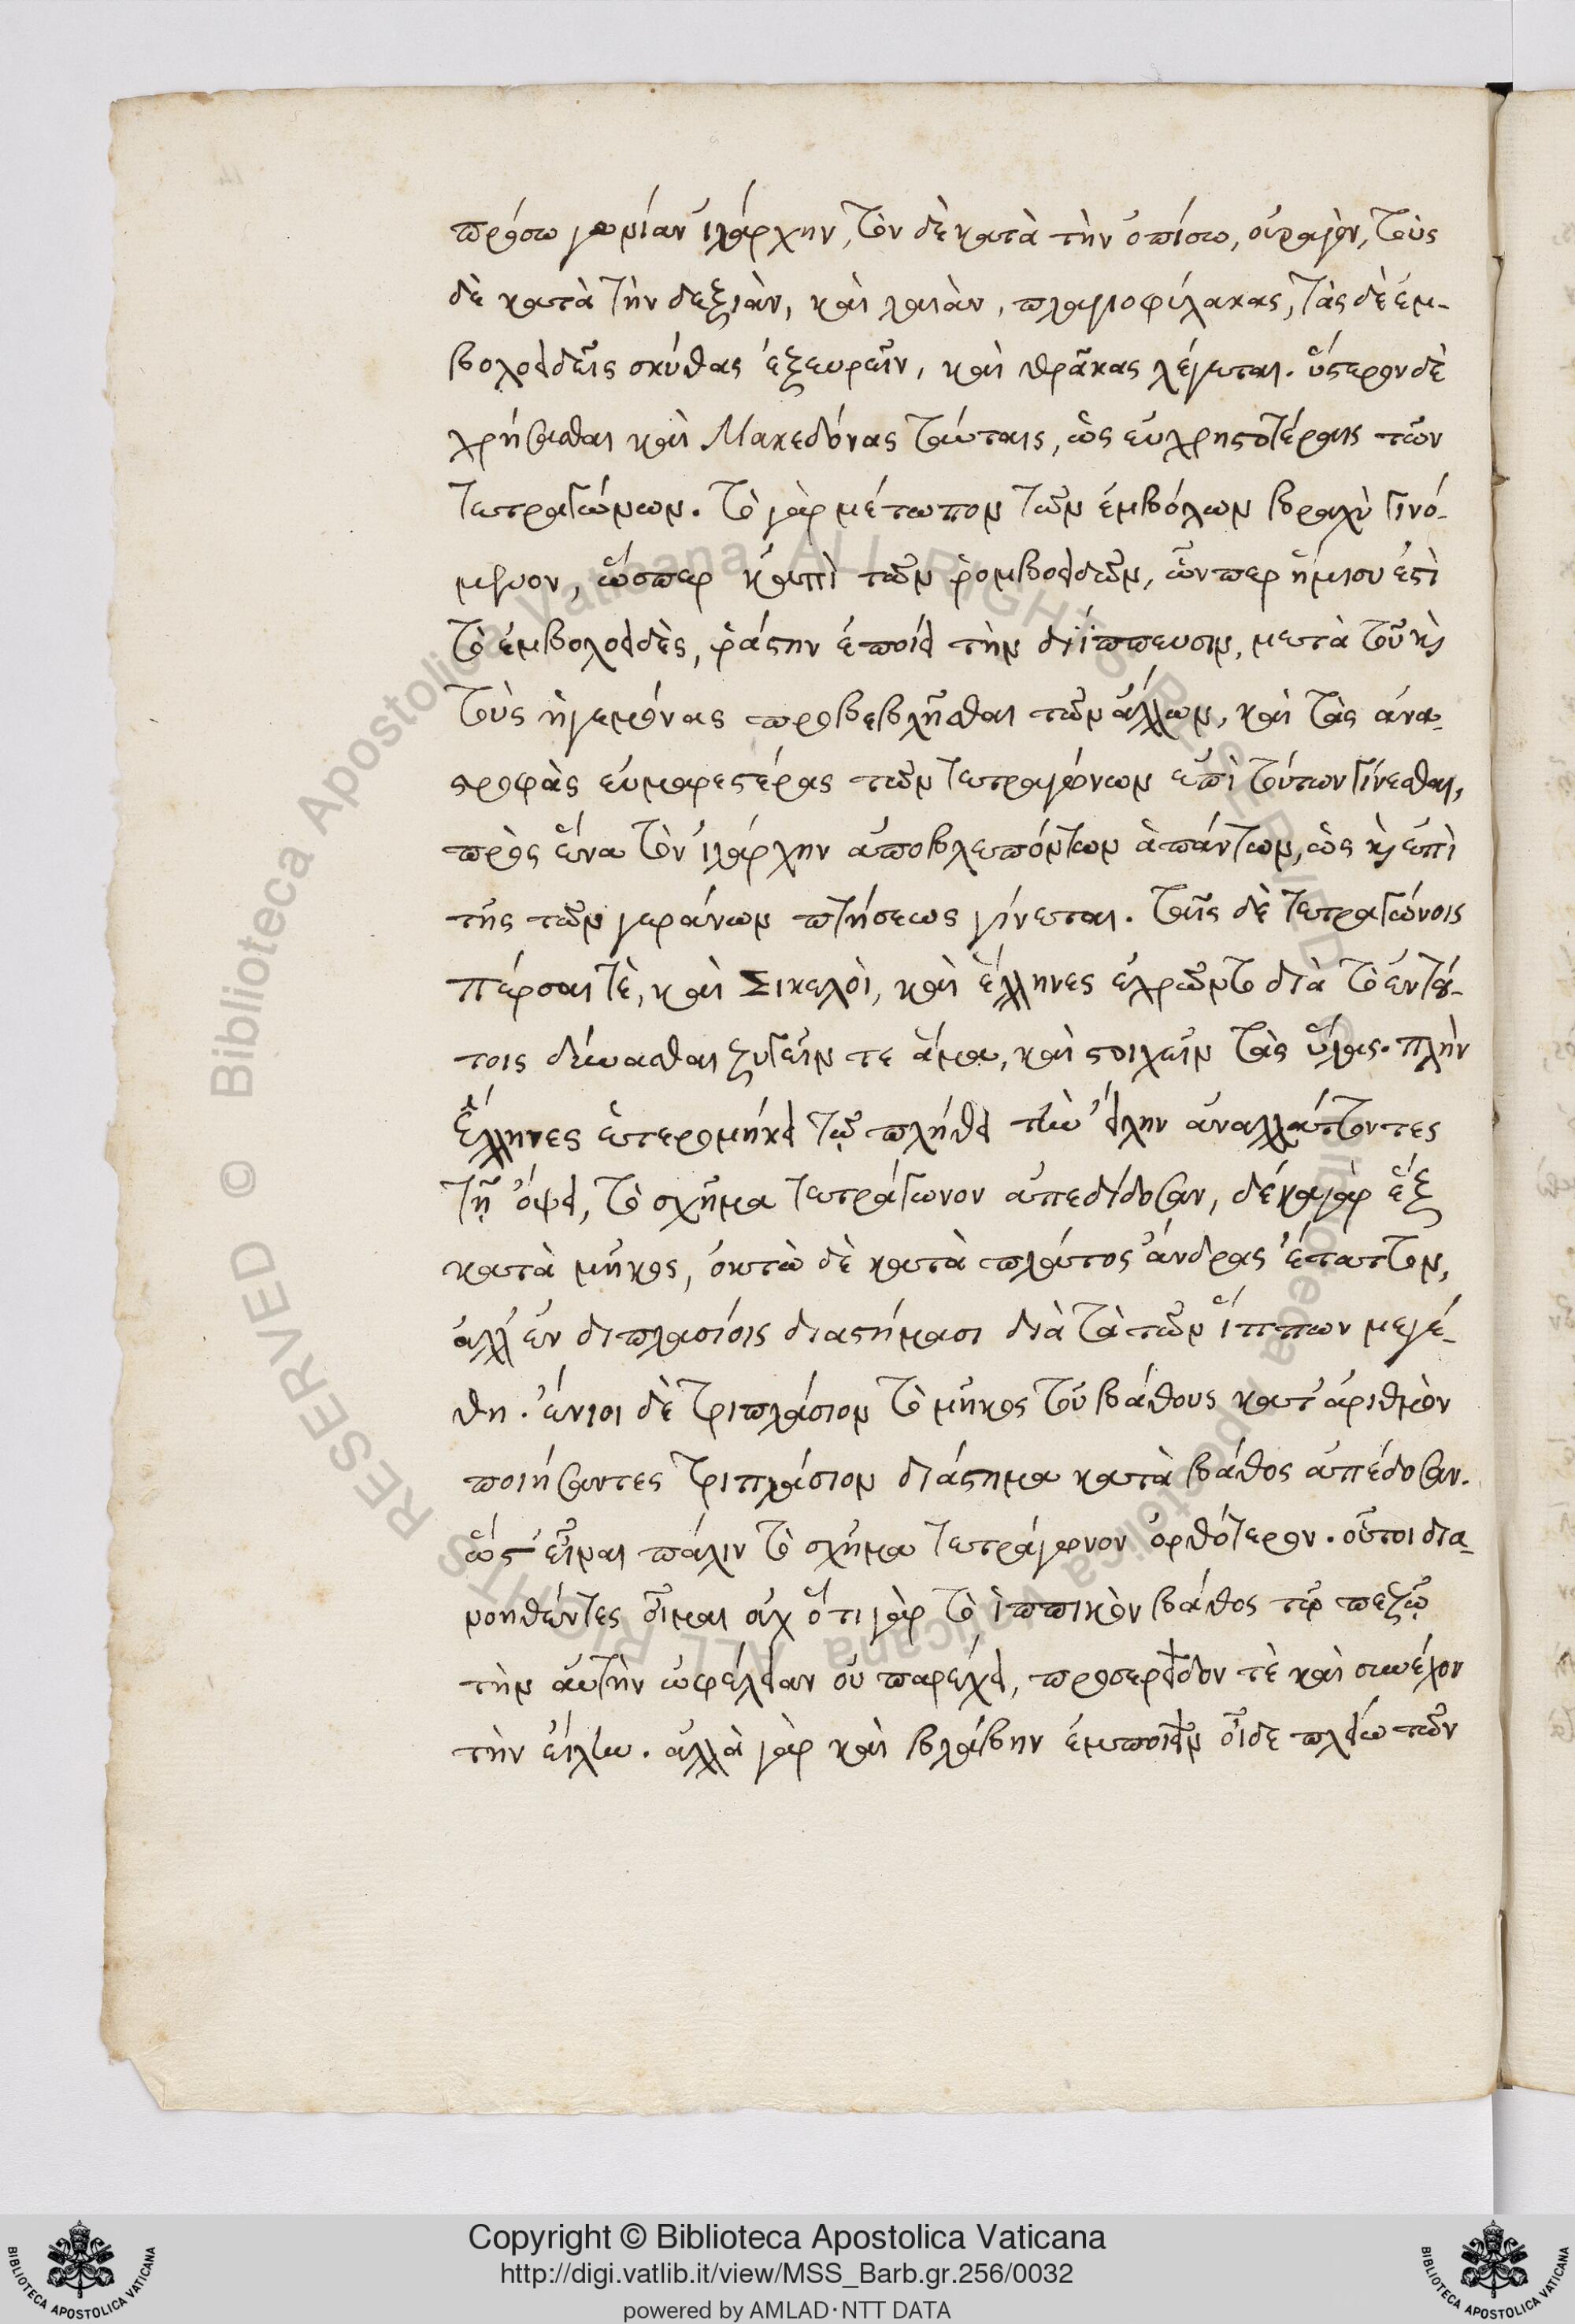 πρόσω γωνίαν ἰλάρχην, τὸν δὲ κατὰ τὴν ὀπίσω, οὐραγὸν, τοὺς
δὲ κατὰ τὴν δεξιὰν, καὶ λαιὰν, πλαγιοφύλακας, τὰς δὲ ἐμ-
βολοειδεῖς σκύθας ἐξευρεῖν, καὶ θρᾶκας λέγεται. ὕστερον δὲ
χρήσασθαι καὶ Μακεδόνας ταύταις, ὡς εὐχρηστοτέραις τῶν
τετραγώνων. τὸ γὰρ μέτωπον τῶν ἐμβόλων βραχὺ γινό-
μενον, ὥσπερ κἀπὶ τῶν ῥομβοειδῶν, ὧνπερ ἥμισυ ἐστὶ
τὸ ἐμβολοειδὲς, ῥάστην ἐποίει τὴν διΐππευσιν, μετὰ τοῦ καὶ
τοὺς ἡγεμόνας προβεβλῆσθαι τῶν ἄλλων, καὶ τὰς ἀνα-
στροφὰς εὐμαρεστέρας τῶν τετραγώνων ἐπὶ τούτων γίνεσθαι,
πρὸς ἕνα τὸν ἰλάρχην ἀποβλεπόντων ἁπάντων, ὡς καὶ ἐπὶ
τῆς τῶν γεράνων πτήσεως γίνεται. τοῖς δὲ τετραγώνοις
πέρσαι τὲ, καὶ Σικελοὶ, καὶ ἕλληνες ἐχρῶντο διὰ τὸ ἐν τού-
τοις δύνασθαι ζυγεῖν τε ἅμα, καὶ στοιχεῖν τὰς ἴλας. πλὴν
Ἕλληνες ἑτερομήκει τῷ πλήθει τὴν εἴλην ἀναλλάττοντες
τῇ ὄψει, τὸ σχῆμα τετράγωνον ἀπεδίδοσαν, δέκα γὰρ ἓξ
κατὰ μῆκος, ὀκτὼ δὲ κατὰ πλάτος ἄνδρας ἔταττον,
ἀλλ' ἐν διπλασίοις διαστήμασι διὰ τὰ τῶν ἵππων μεγέ-
θη. ἔνιοι δὲ τριπλάσιον τὸ μῆκος τοῦ βάθους κατ' ἀριθμὸν
ποιήσαντες τριπλάσιον διάστημα κατὰ βάθος ἀπέδοσαν.
ὥστ' εἶναι πάλιν τὸ σχῆμα τετράγωνον ὀρθότερον. οὗτοι δια-
νοηθέντες οἶμαι οὐχ ὅτι γὰρ τὸ ἱππικὸν βάθος τῷ πεζῷ
τὴν αὐτὴν ὠφέλειαν οὐ παρείχει, προσερεῖδον τὲ καὶ συνέχον
τὴν εἴλην. ἀλλὰ γὰρ καὶ βλάβην ἐμποιεῖν οἶδε πλείω τῶν